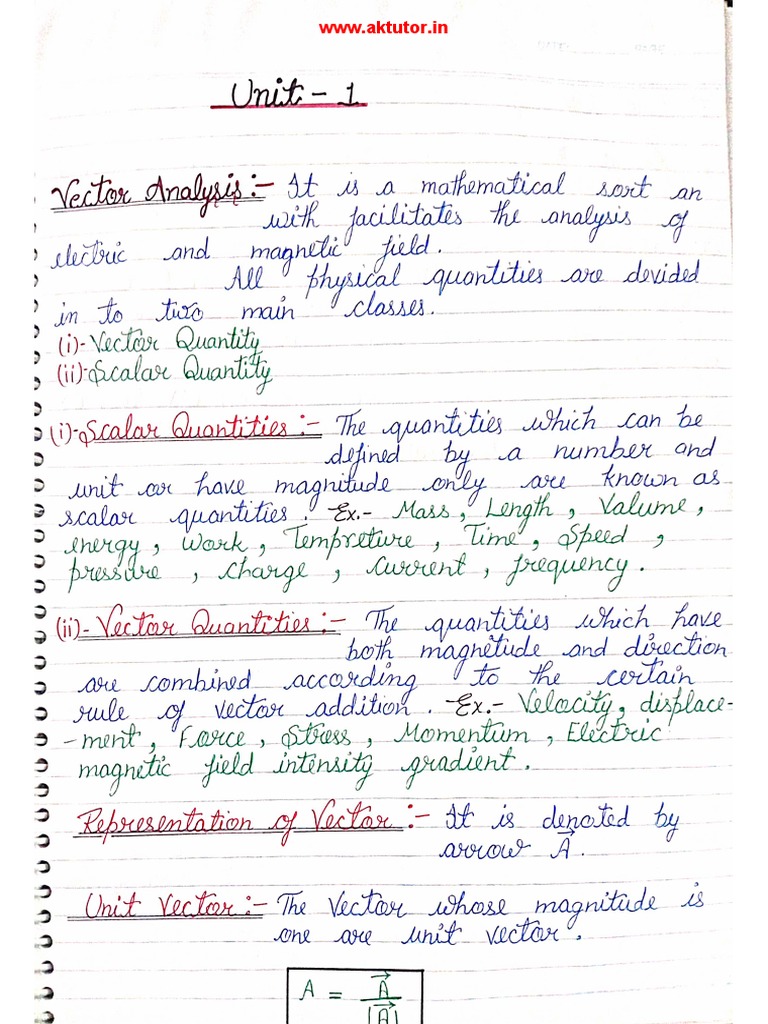 www.aktutor.in
Unit - 1
Vector Analysis :- It is a mathematical sort an
with facilitates the analysis of
electric and magnetic field.
All physical quantities are devided
in to two main classes.
(i)- Vector Quantity
(ii)- Scalar Quantity
(i)- Scalar Quantities :- The quantities which can be
defined by a number and
unit or have magnitude only are known as
scalar quantities. Ex.- Mass, Length, Valume,
energy, work, Tempreture, Time, Speed,
pressure, charge, current, frequency.
(ii)- Vector Quantities :- The quantities which have
both magnitude and direction
are combined according to the certain
rule of vector addition. Ex.- Velocity, displace-
-ment, Force, Stress, Momentum, Electric
magnetic field intensity gradient.
Representation of Vector :- It is denoted by
arrow A⃗.
Unit Vector :- The Vector whose magnitude is
one are unit vector.
A = A⃗ / |A⃗|